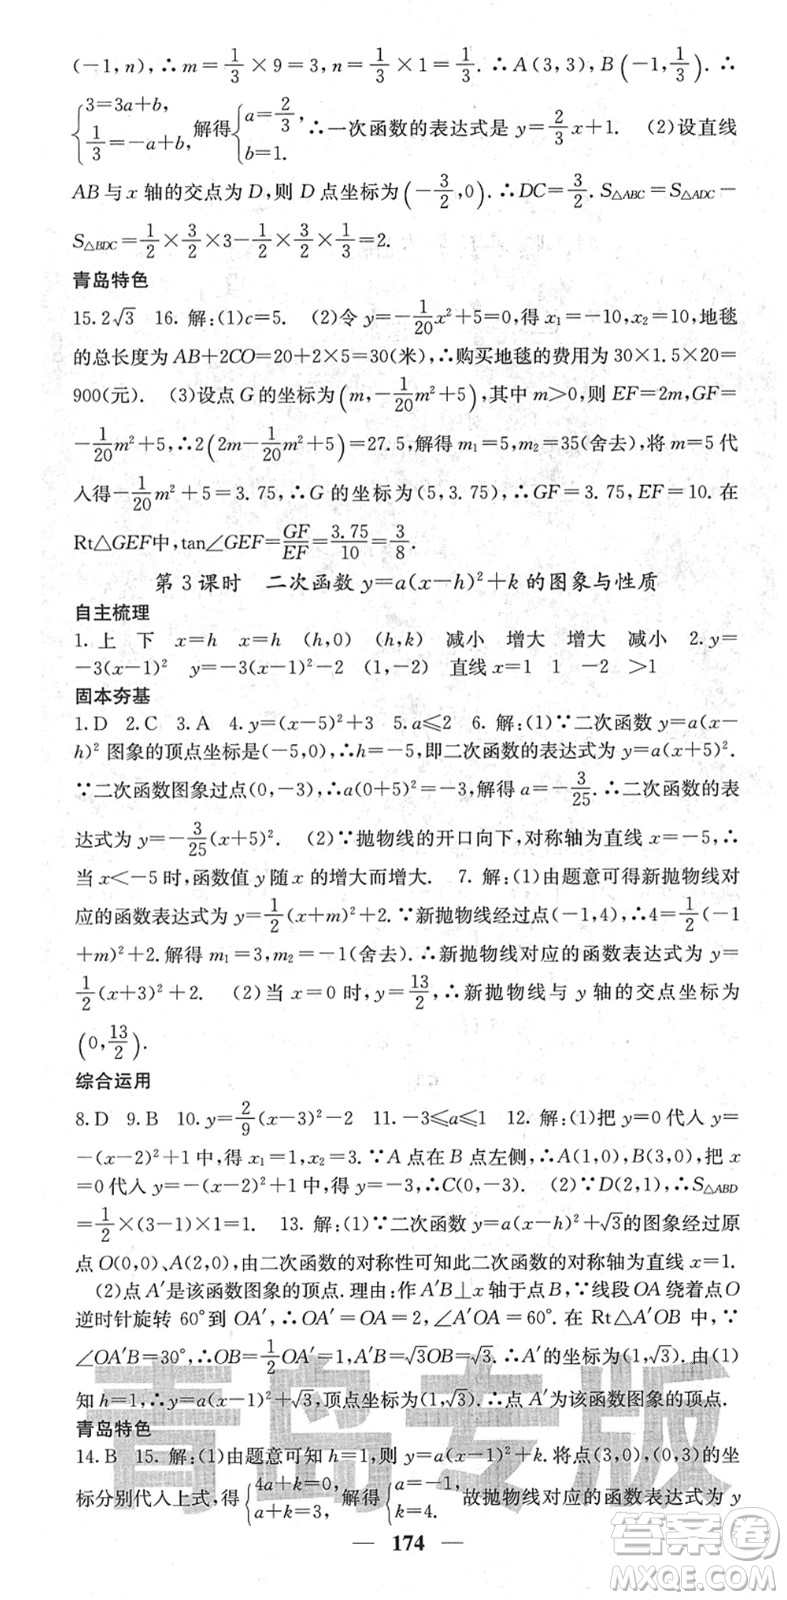 (-1,n),∴m=1/3×9=3,n=1/3×1=1/3.∴A(3,3),B(-1,1/3).∴
{3=3a+b, 1/3=-a+b,解得{a=2/3, b=1.∴一次函数的表达式是 y=2/3x+1. (2)设直线
AB与x轴的交点为D,则D点坐标为(-3/2,0).∴DC=3/2.∴S△ABC=S△ADC-
S△BDC=1/2×3/2×3-1/2×3/2×1/3=2.
青岛特色
15.2√3 16.解:(1)c=5. (2)令y=-1/20x²+5=0,得x₁=-10,x₂=10,地毯
的总长度为AB+2CO=20+2×5=30(米),∴购买地毯的费用为30×1.5×20=
900(元). (3)设点G的坐标为(m,-1/20m²+5),其中m>0,则EF=2m,GF=
-1/20m²+5,∴2(2m-1/20m²+5)=27.5,解得m₁=5,m₂=35(舍去),将m=5代
入得-1/20m²+5=3.75,∴G的坐标为(5,3.75),∴GF=3.75,EF=10.在
Rt△GEF中,tan∠GEF=GF/EF=3.75/10=3/8.
第3课时 二次函数y=a(x-h)²+k的图象与性质
自主梳理
1.上 下 x=h x=h (h,0) (h,k) 减小 增大 增大 减小 2.y=
-3(x-1)² y=-3(x-1)²-2 (1,-2) 直线x=1 1 -2 >1
固本夯基
1.D 2.C 3.A 4.y=(x-5)²+3 5.a≤2 6.解:(1)∵二次函数y=a(x-
h)²图象的顶点坐标是(-5,0),∴h=-5,即二次函数的表达式为y=a(x+5)².
∵二次函数图象过点(0,-3),∴a(0+5)²=-3,解得a=-3/25.∴二次函数的表
达式为y=-3/25(x+5)². (2)∵抛物线的开口向下,对称轴为直线x=-5,∴
当x<-5时,函数值y随x的增大而增大. 7.解:(1)由题意可得新抛物线对
应的函数表达式为y=1/2(x+m)²+2.∵新抛物线经过点(-1,4),∴4=1/2(-1
+m)²+2.解得m₁=3,m₂=-1(舍去).∴新抛物线对应的函数表达式为y=
1/2(x+3)²+2. (2)当x=0时,y=13/2,∴新抛物线与y轴的交点坐标为
(0,13/2).
综合运用
8.D 9.B 10.y=2/9(x-3)²-2 11.-3≤a≤1 12.解:(1)把y=0代入y=
-(x-2)²+1中,得x₁=1,x₂=3.∵A点在B点左侧,∴A(1,0),B(3,0).把x
=0代入y=-(x-2)²+1中,得y=-3,∴C(0,-3). (2)∵D(2,1),∴S△ABD
=1/2×(3-1)×1=1. 13.解:(1)∵二次函数y=a(x-h)²+√3的图象经过原
点O(0,0)、A(2,0),由二次函数的对称性可知此二次函数的对称轴为直线x=1.
(2)点A′是该函数图象的顶点.理由:作A′B⊥x轴于点B,∵线段OA绕着点O
逆时针旋转60°到OA′,∴OA′=OA=2,∠A′OA=60°.在Rt△A′OB中,∵
∠OA′B=30°,∴OB=1/2OA′=1,A′B=√3OB=√3.∴A′的坐标为(1,√3).由(1)
知h=1,∴y=a(x-1)²+√3,顶点坐标为(1,√3).∴点A′为该函数图象的顶点.
青岛特色
14.B 15.解:(1)由题意可知h=1,则y=a(x-1)²+k.将点(3,0),(0,3)的坐
标分别代入上式,得{4a+k=0, a+k=3,解得{a=-1, k=4.故抛物线对应的函数表达式为y
174
青岛专版
答案圈
MXQE.COM